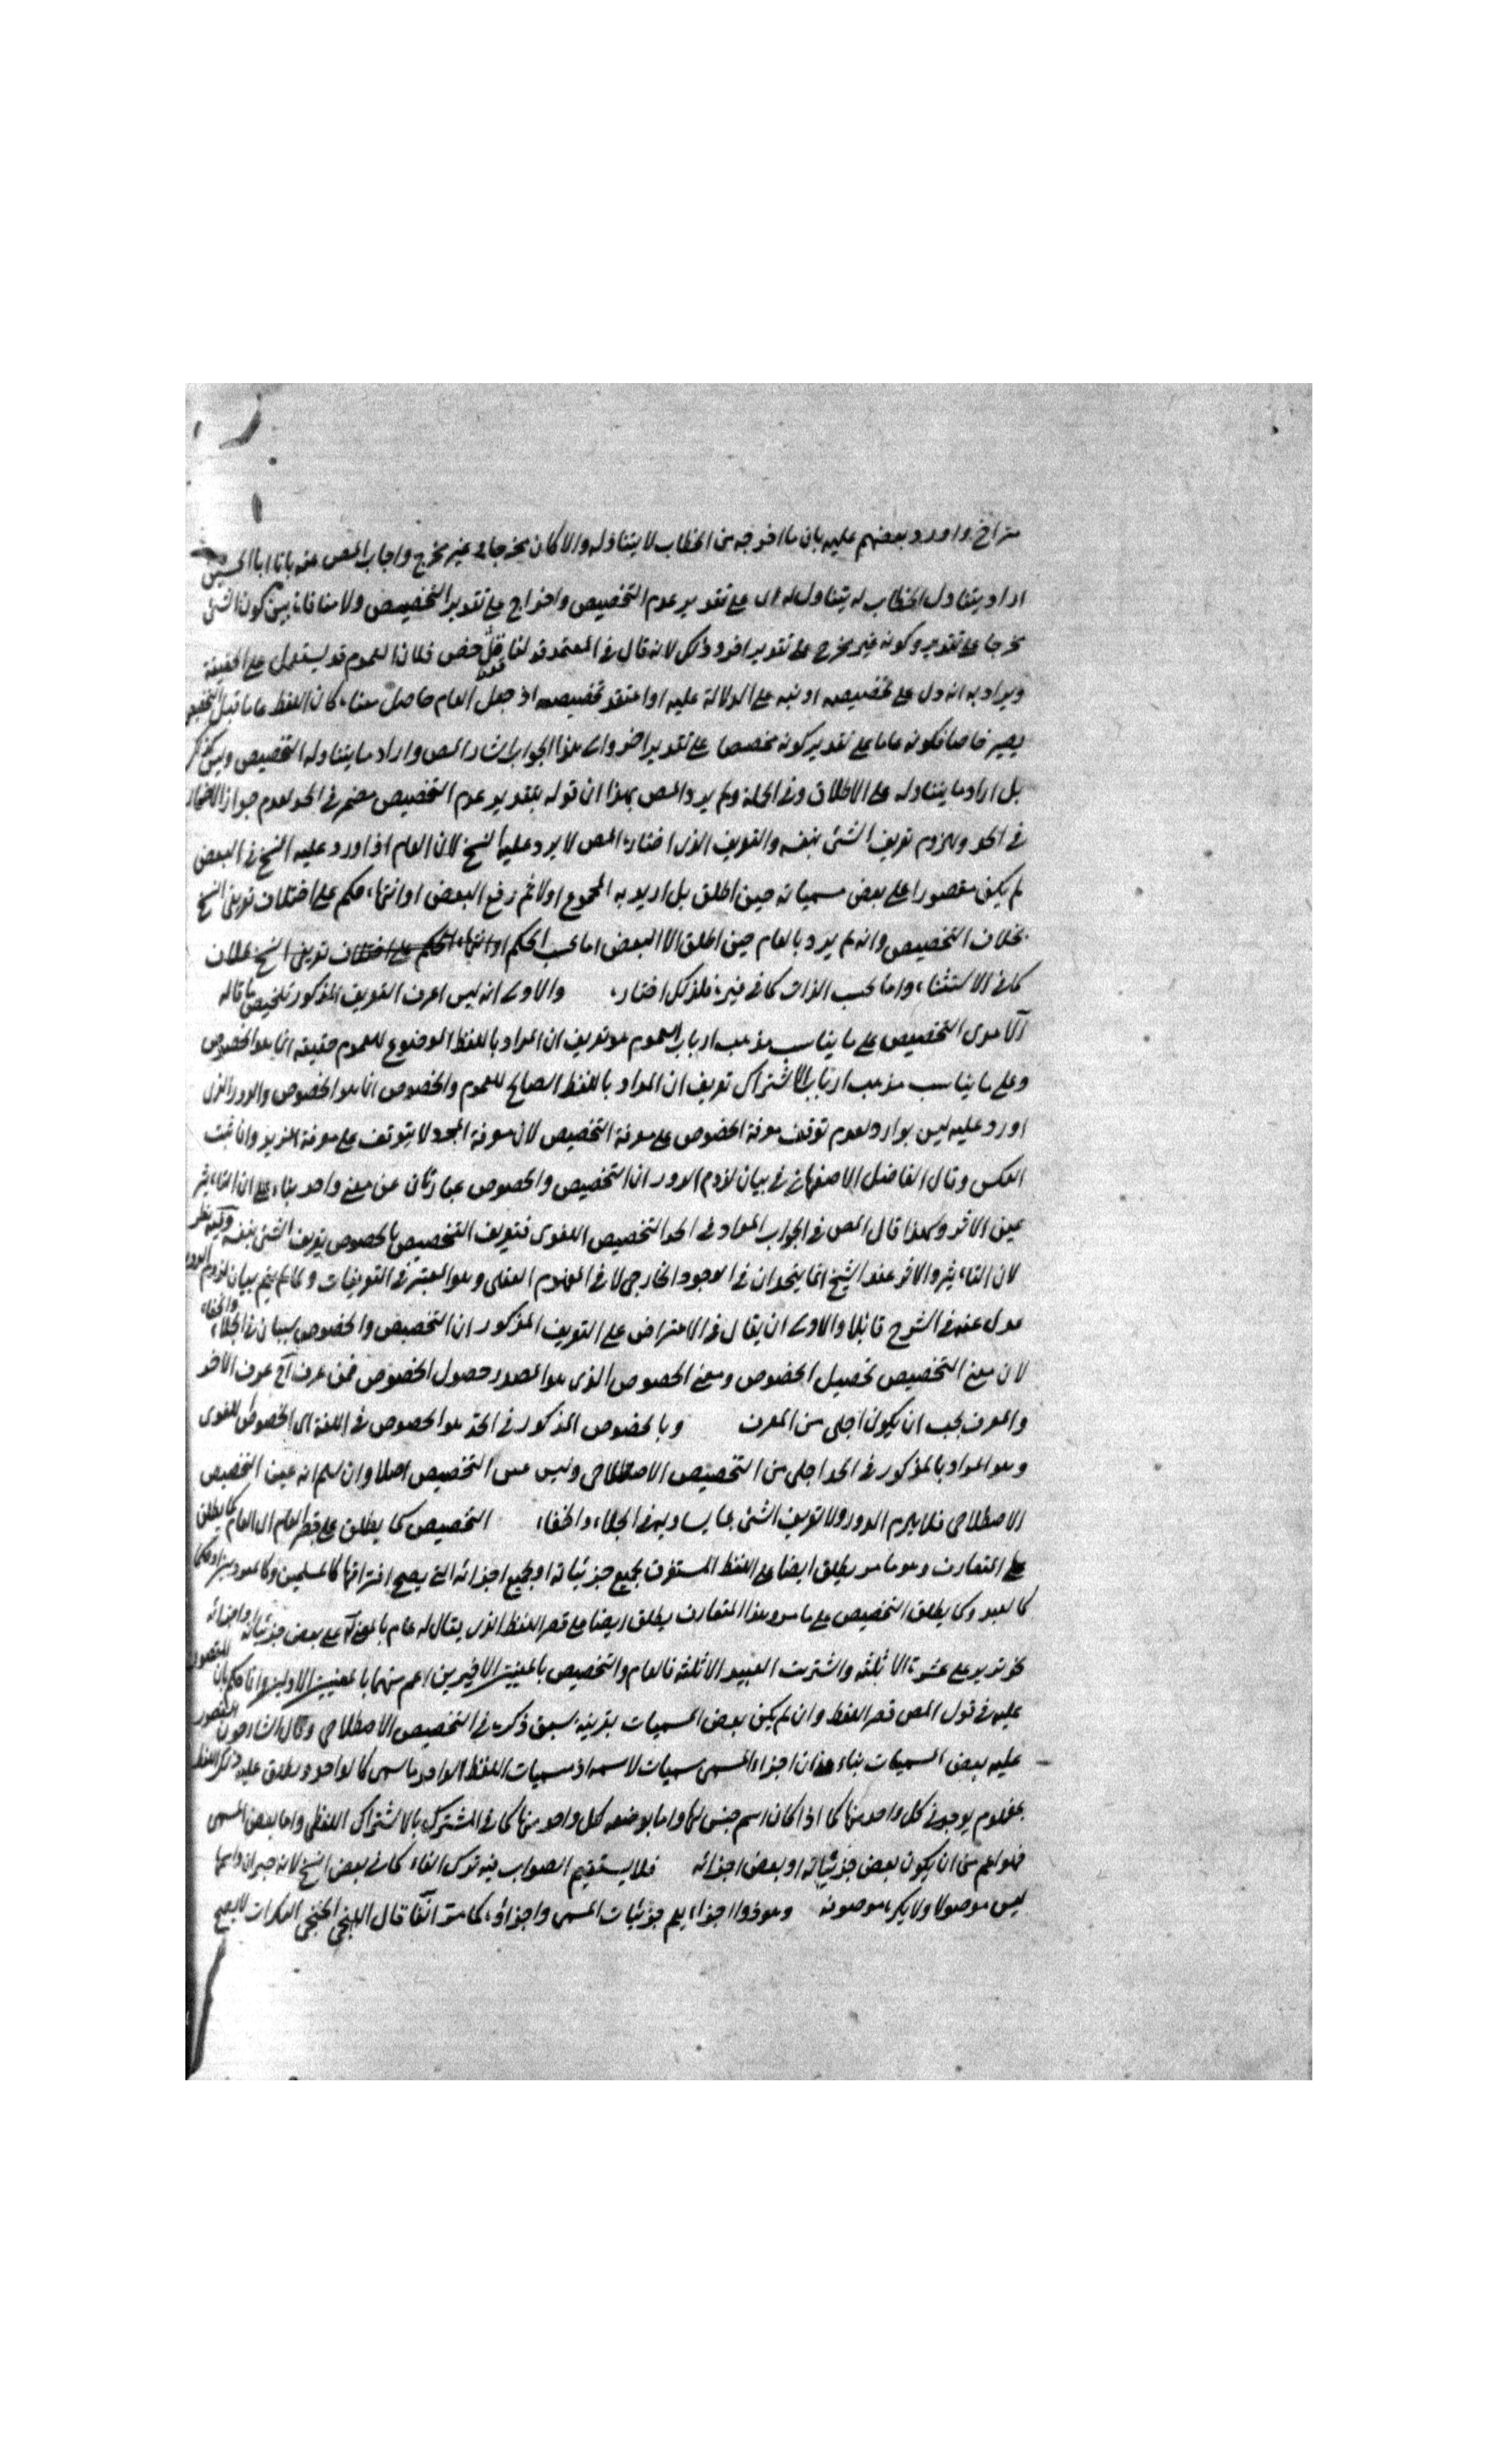 متراخ واورد بعضهم عليه بان ما اخرجه من الخطاب لا يتناوله والا كان مخرجا و غير مخرج واجاب المص عنه بان ابا الحسين
اراد بتناول الخطاب له يتناول له ال على تقدير عدم التخصيص واخراج على تقدير التخصيص ولا منافاة بين كون الشئ
مخرجا على تقدير وكونه غير مخرج على تقدير اخر وذلك لانه قال في المعتمد قولنا خص فلان العموم قد يستعمل على الحقيقة
ويراد به انه دل على تخصيصه او نبه على الدلالة عليه او اعتقد تخصيصه اذ جعل العام خاصا كان اللفظ عاما قبل التخصيص
يصير خاصا فكونه عاما على تقدير كونه مخصصا على تقدير اخر والى هذا الجواب اشار المص واراد ما يتناوله التخصيص وليس كذلك
بل اراد ما يتناوله على الاطلاق وفي الجملة ولم يرد المص بهذا ان قوله بتقدير عدم التخصيص مضمر في الحد لعدم جواز الاضمار
في الحد ولزوم تعريف الشئ بنفسه والتعريف الذى اختاره المص لا يرد عليه النسخ لان العام اذا ورد عليه النسخ في البعض
لم يكن مقصورا على بعض مسمياته حين اطلق بل اريد به المجموع اولا ثم رفع البعض او انتهاء حكم على اختلاف تعريفى النسخ
بخلاف التخصيص وانه لم يرد بالعام حين اطلق الا البعض اما بحسب الحكم او انتهاء الحكم على اختلاف تعريفى النسخ بخلاف
كما في الاستثناء واما بحسب الذات كما في غيره فلذلك اختاره والاولى انه ليس اعرف التعريف المذكور تلخيص ما قاله
الآمدى التخصيص على ما يناسب مذهب ارباب العموم هو تعريف ان المراد باللفظ الموضوع للعموم حقيقة انما هو الخصوص
وعلى ما يناسب مذهب ارباب الاشتراك تعريف ان المراد باللفظ الصالح للعموم والخصوص انما هو الخصوص والدور الذى
اورد عليه ليس بوارد لعدم توقف معرفة الخصوص على معرفة التخصيص لان معرفة المجرد لا يتوقف على معرفة المزيد وانما ثبت
العكس وقال الفاضل الاصفهاني في بيان لزوم الدور ان التخصيص والخصوص عبارتان عن معنى واحد بناء على ان التاثير
عين الاثر ولهذا قال المص في الجواب المراد في الحد التخصيص اللغوى فتعريف التخصيص بالخصوص تعريف الشئ بنفسه وفيه نظر
لان التاثير والاثر عند الشيخ انما يتحدان في الوجود الخارجى لا في المفهوم العقلى وهو المعتبر في التعريفات ولما لم يتم بيان لزوم الدور
عدل عنه في الشرح قائلا والاولى ان يقال في الاعتراض على التعريف المذكور ان التخصيص والخصوص سيان في الجلاء والخفاء
لان معنى التخصيص تحصيل الخصوص ومعنى الخصوص الذى هو المصدر حصول الخصوص فمن عرف احد عرف الاخر
والمعرف يجب ان يكون اجلى من المعرف وبالخصوص المذكور في الحد هو الخصوص في اللغة اى الخصوص اللغوى
وهو المراد بالمذكور في الحد اجلى من التخصيص الاصطلاحى وليس عين التخصيص اصلا وان سلم انه عين التخصيص
الاصطلاحى فلا يلزم الدور ولا تعريف الشئ بما يساويه في الجلاء والخفاء التخصيص كما يطلق على قصر العام ال العام كما يطلق
على المتعارف وهو ما مر يطلق ايضا على اللفظ المستغرق لجميع جزئياته او لجميع اجزائه التى يصح افتراقها كالمسلمين وكالعهد
كالعبد وكما يطلق التخصيص على ما مر وهذا المتعارف يطلق ايضا على قصر اللفظ الذى يقال له عام بالمعنى على بعض جزئياته او اجزائه
كعزيز على عشرة الا ثلثة واشتريت العبيد الا ثلثة فالعام والتخصيص بالمعنيين الاخيرين اعم منهما بالمعنيين الاولين وانما حكم بان المقصور
عليه في قول المص قصر اللفظ وان لم يكن بعض المسميات بقرينة سبق ذكره في التخصيص الاصطلاحى وقال الشارحون المقصور
عليه بعض المسميات بناء على ان اجزاء المسمى مسميات لاسمه اذ مسميات اللفظ الواحد ما سمى كالواحد ويطلق عليه ذلك اللفظ
بمفهوم يوجد في كل واحد منها كما اذا كان اسم جنس لها واما بوضعه لكل واحد منها كما في المشترك بالاشتراك اللفظى واما بعض المسمى
فهو اعم من ان يكون بعض جزئياته او بعض اجزائه فلا يستقيم الصواب فيه ترك الفاء كما في بعض النسخ لانه خبر ان واسمها
ليس موصولا ولا نكرة موصوفة وهو ذوا اجزاء يعم جزئيات المسمى واجزاؤه كما مر آنفا قال البلخى الخنجى النكرات لا يصح